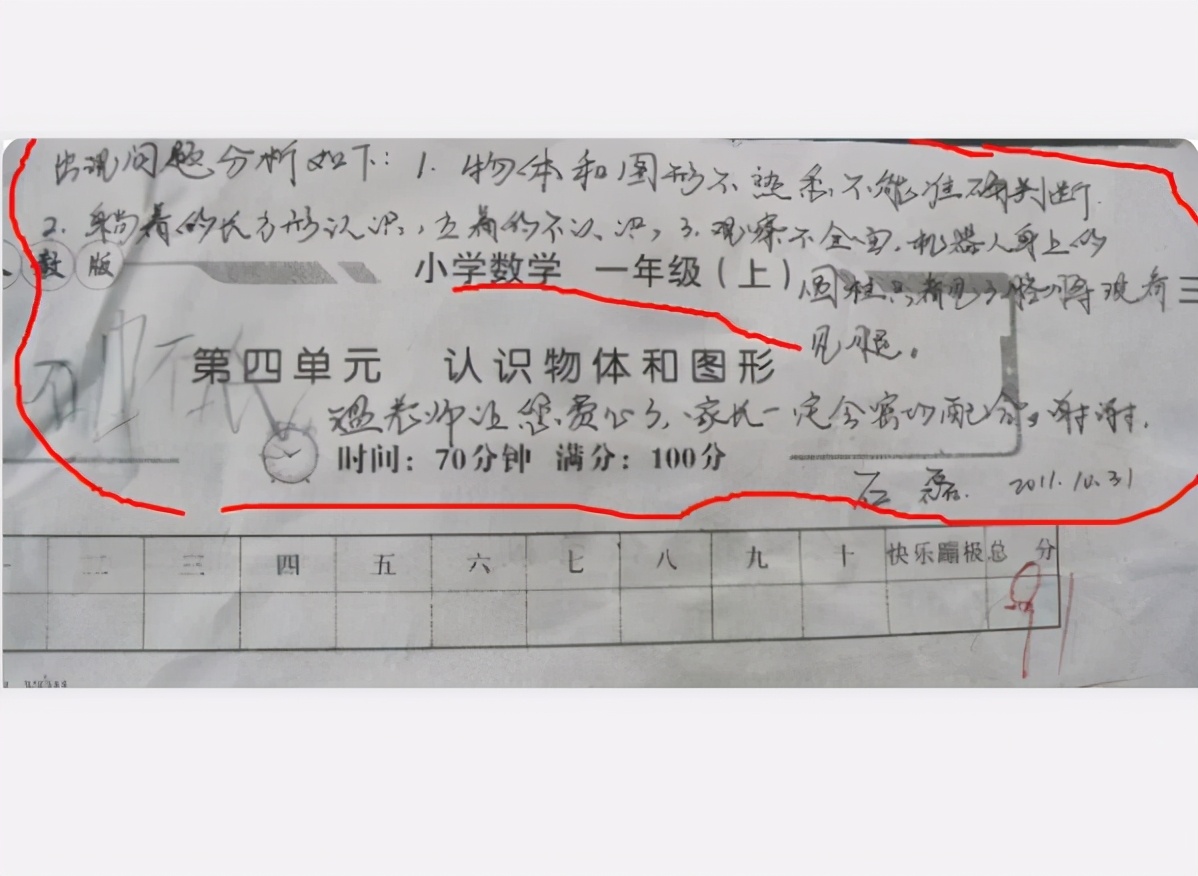 出现问题分析如下：1. 物体和图形不熟悉不能准确判断.
2. 躺着的长方形认识，立着的不认识，3. 观察不全面. 机器人身上的
数 版
小学数学 一年级（上）
圆柱只看见了 没有
见腿。
第四单元 认识物体和图形
老师 费心了、家长一定会密切配合。谢谢.
时间：70分钟 满分：100分
石磊. 2011.10.31
一 二 三 四 五 六 七 八 九 十 快乐蹦极 总 分
91